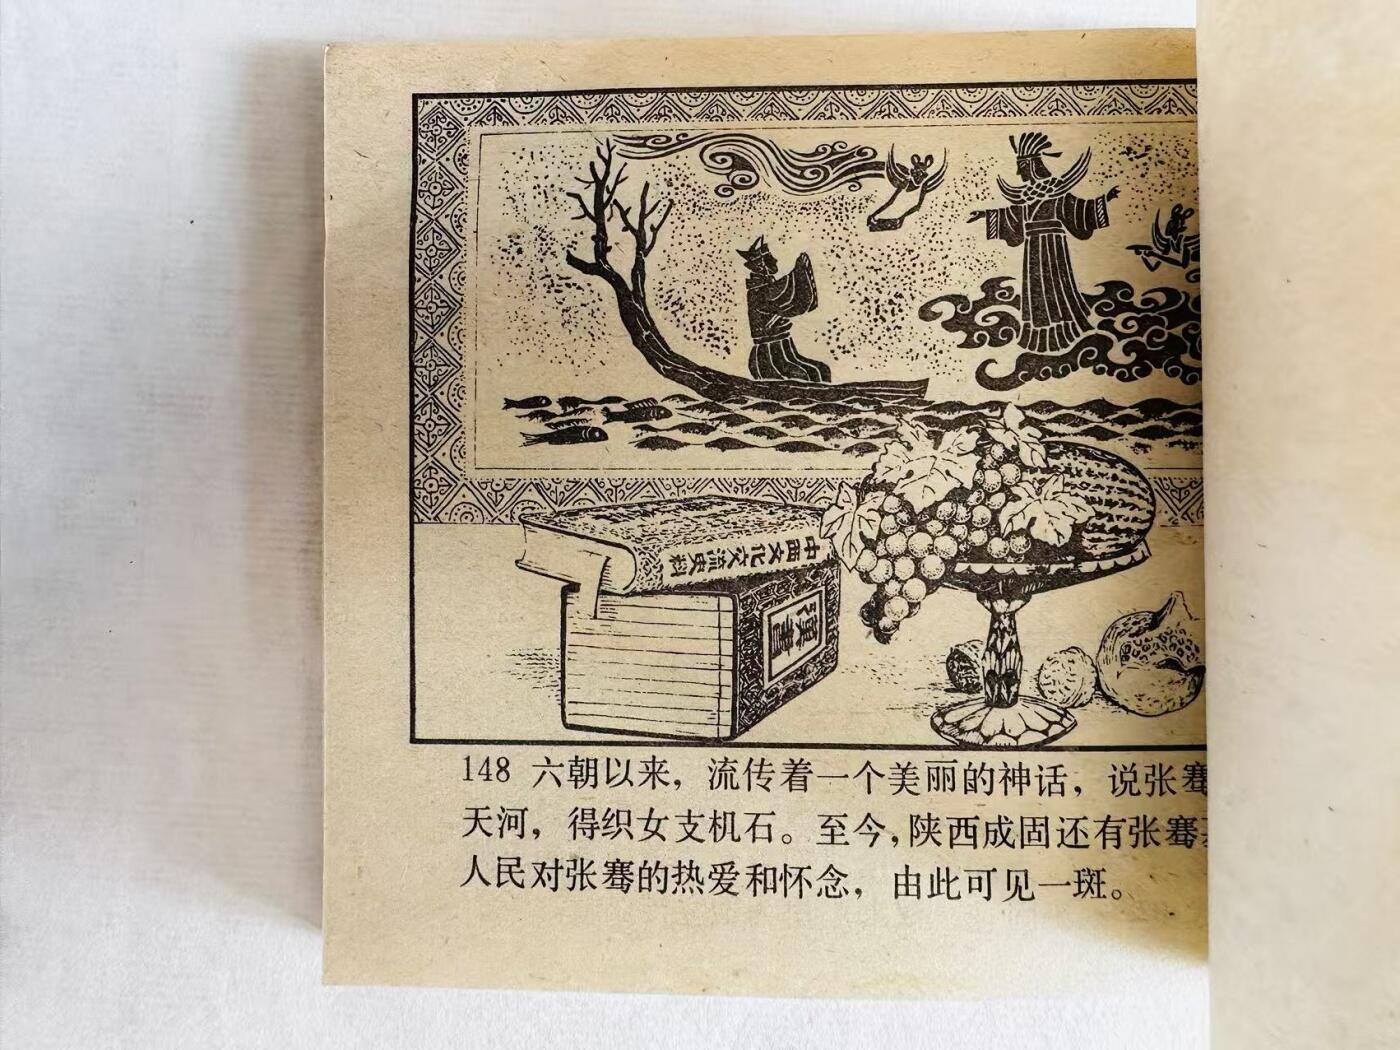 中西文化交流史料
汉書
148 六朝以来，流传着一个美丽的神话，说张骞
天河，得织女支机石。至今，陕西成固还有张骞
人民对张骞的热爱和怀念，由此可见一斑。